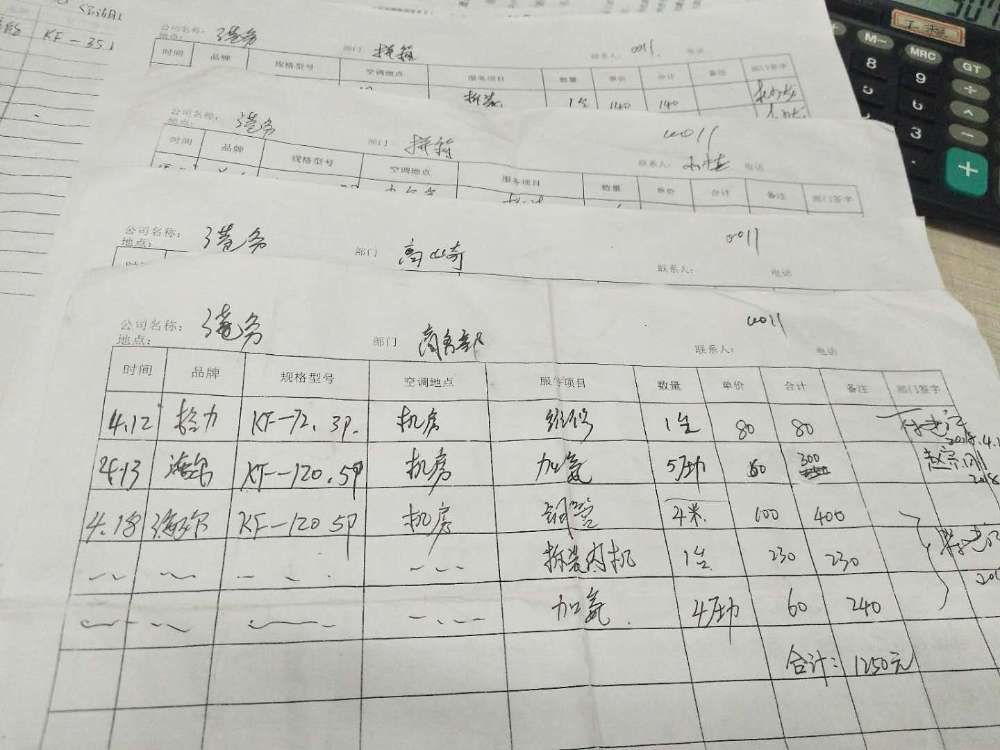 KF-351
公司名称: 港务 部门 拼箱 联系人: 0011 电话
地点:
时间 品牌 规格型号 空调地点 服务项目 数量 单价 合计 备注 部门签字
拆装 1台 140 140
公司名称: 港务 部门 拼箱 0011 联系人: 电话
地点:
时间 品牌 规格型号 空调地点 服务项目 数量 单价 合计 备注 部门签字
公司名称: 港务 部门 高崎 0011 联系人: 电话
地点:
公司名称: 港务 部门 商务部 0011 联系人: 电话
地点:
时间 品牌 规格型号 空调地点 服务项目 数量 单价 合计 备注 部门签字
4.12 格力 KF-72.3P. 机房 维保 1台 80 80
4.13 海尔 KF-120.5P 机房 加氟 5压力 60 300
4.18 海尔 KF-120 5P 机房 铜管 4米 100 400
拆装内机 1台 230 230
加氟 4压力 60 240
合计: 1250元
M- MRC GT
8 9
3 +